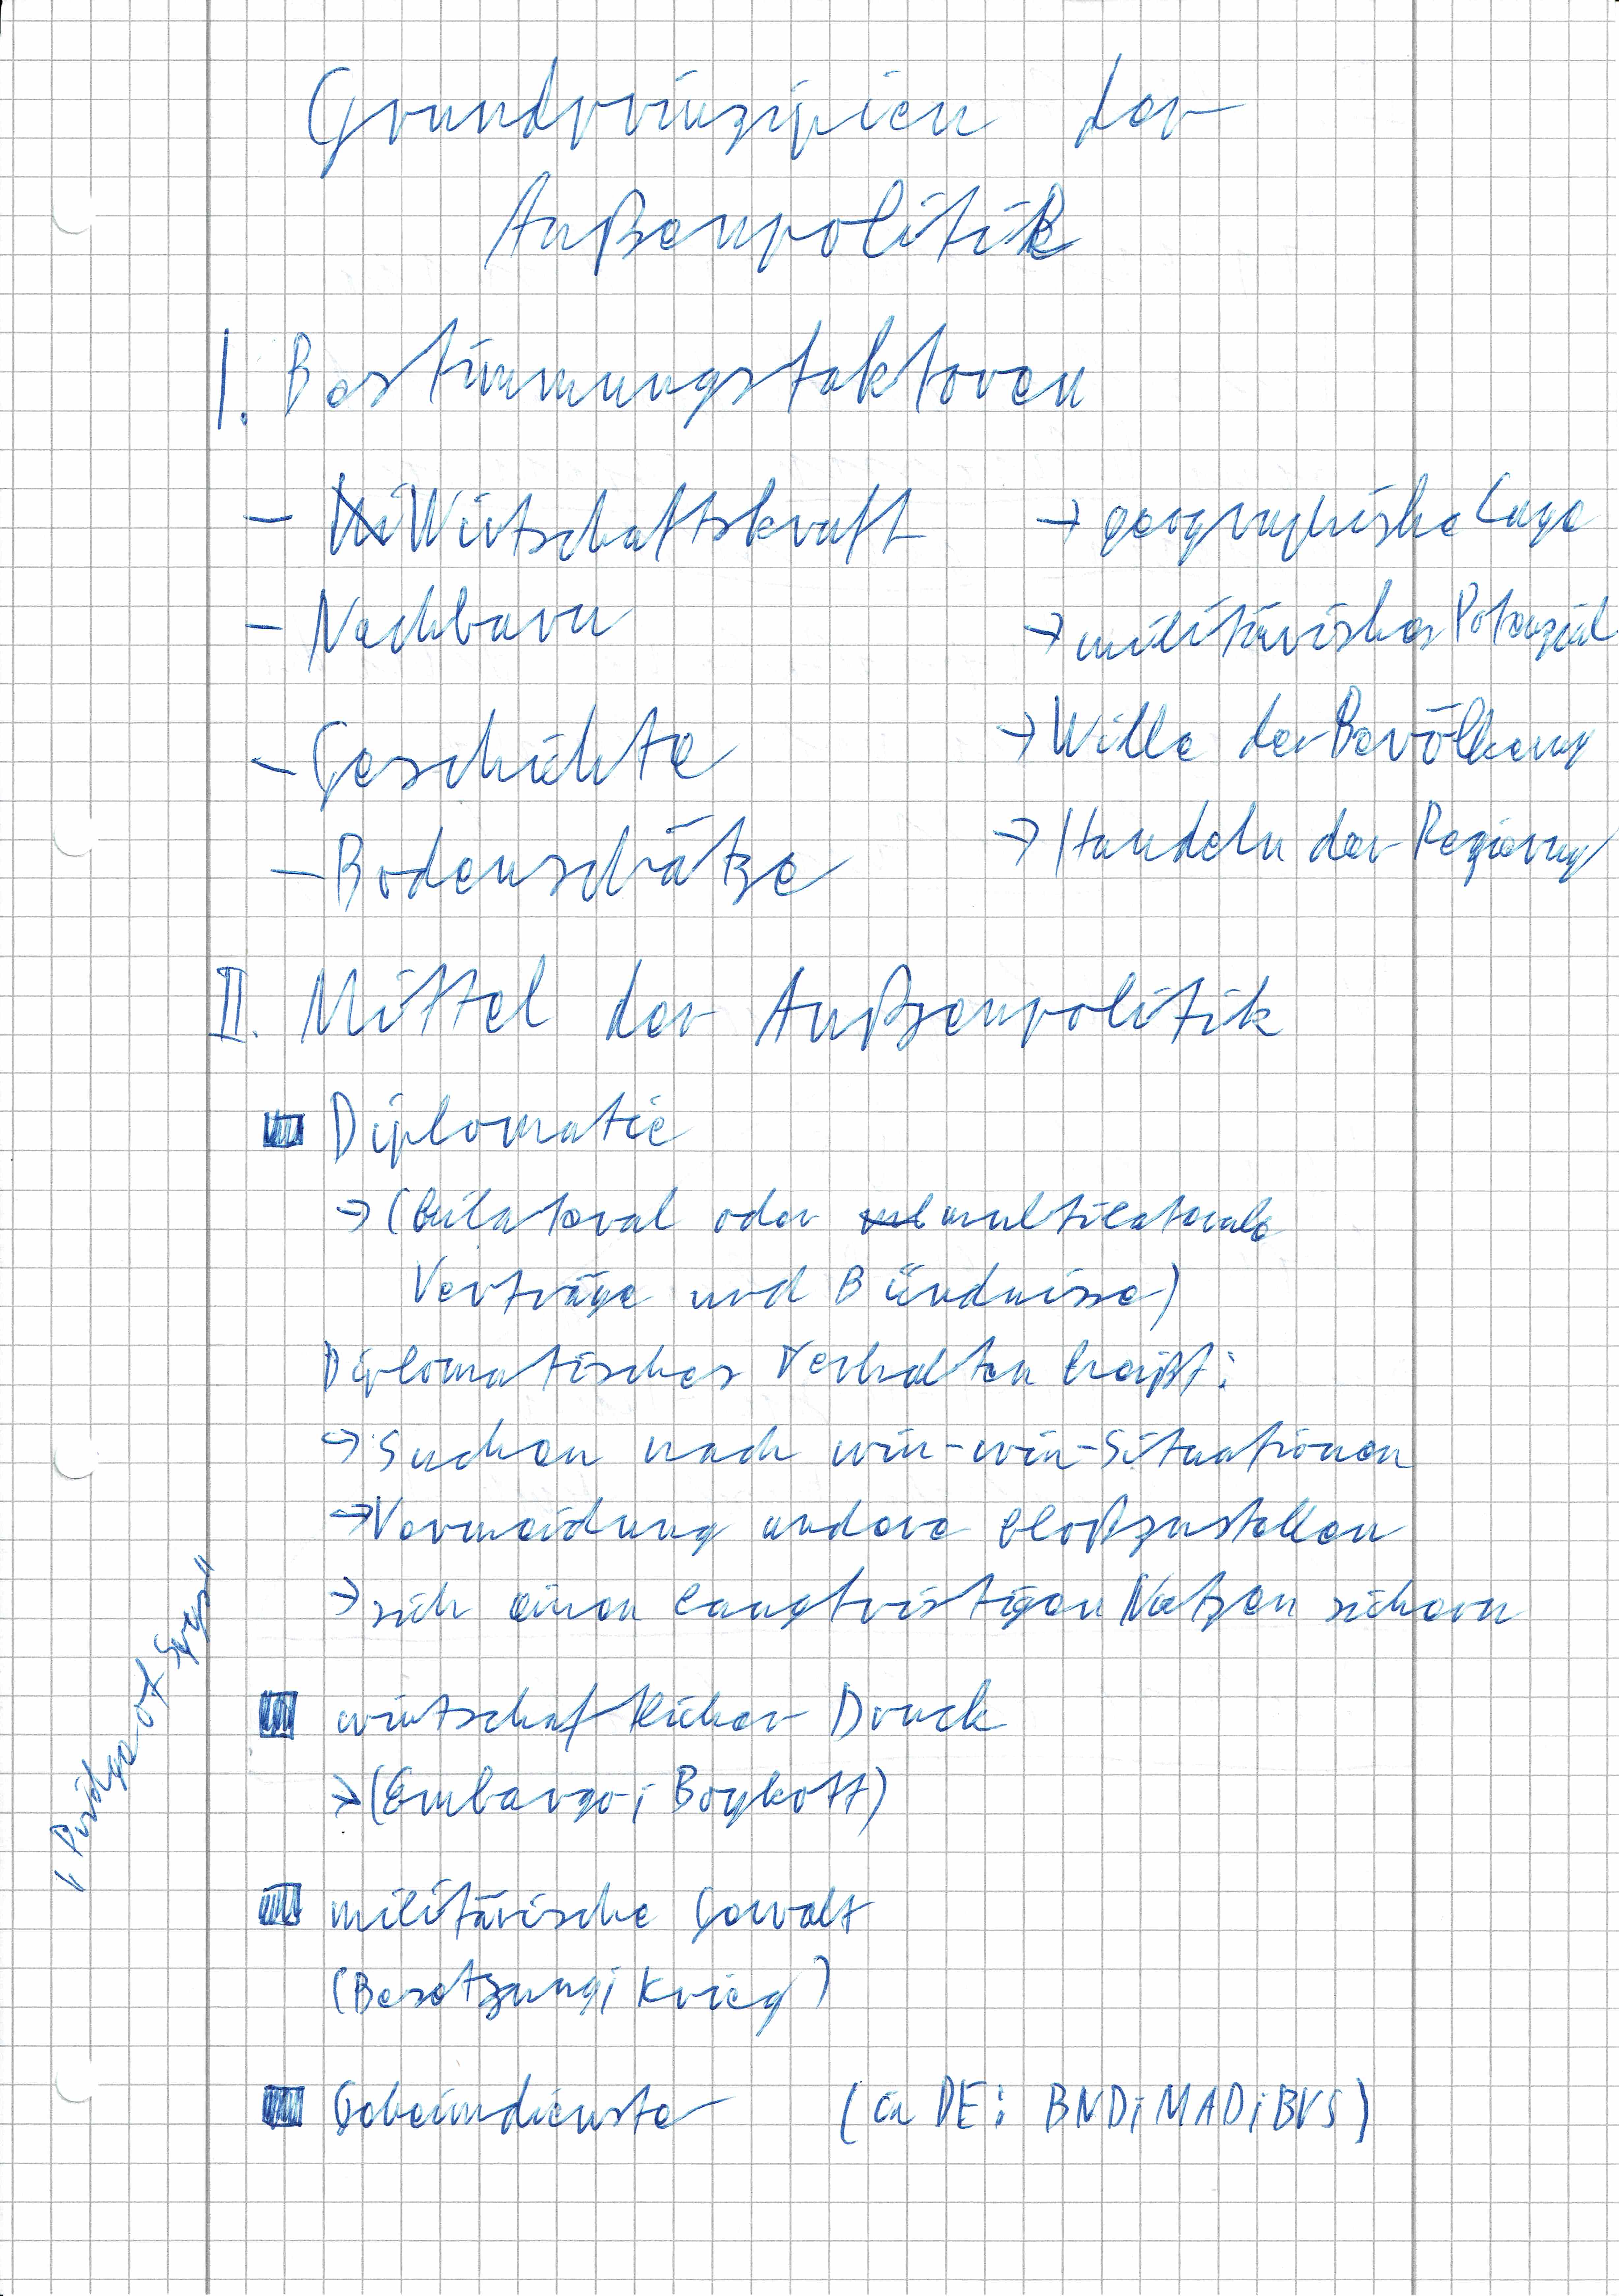 Grundprinzipien der
Außenpolitik
I. Bestimmungsfaktoren
- Wirtschaftskraft
- Nachbarn
- Geschichte
- Bodenschätze
→ geographische Lage
→ militärisches Potenzial
→ Wille der Bevölkerung
→ Handeln der Regierung
II. Mittel der Außenpolitik
■ Diplomatie
→ (bilateral oder multilaterale
Verträge und Bündnisse)
Diplomatisches Verhalten heißt:
→ Suchen nach win-win-Situationen
→ Vermeidung andere bloßzustellen
→ sich einen langfristigen Nutzen sichern
■ wirtschaftlicher Druck
→ (Embargo; Boykott)
■ militärische Gewalt
(Besetzung; Krieg)
■ Geheimdienste (in DE: BND; MAD; BVS)
„Bridge of Spys"